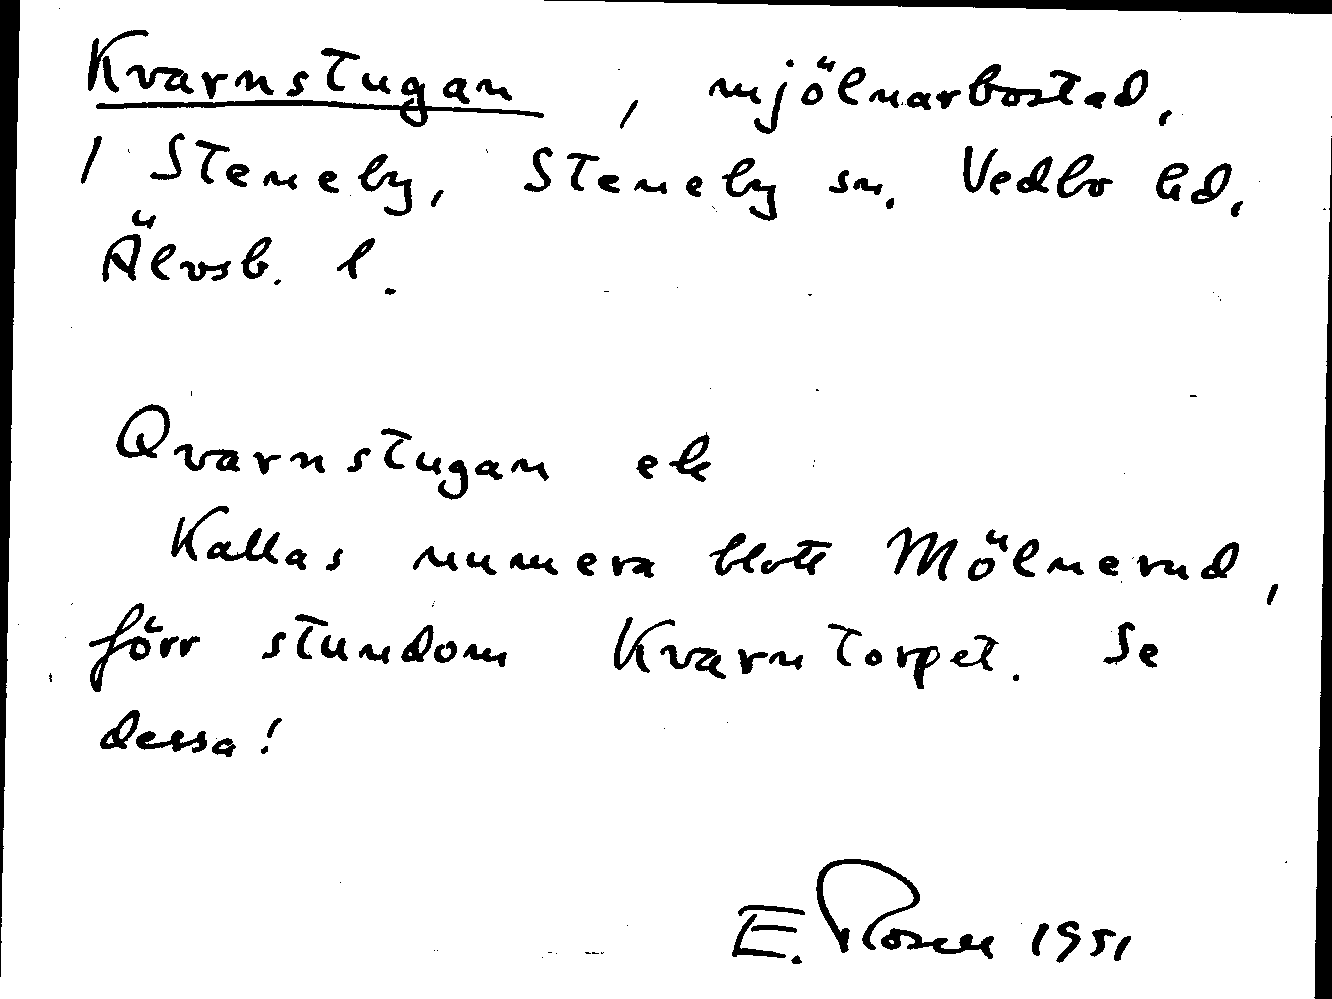 Kvarnstugan, mjölnarbostad,
/ Steneby, Steneby sn. Vedbo hd,
Älvsb. l.
Qvarnstugan ek
Kallas numera blott Mölnerud,
förr stundom Kvarntorpet. Se
dessa!
E. Rosell 1951